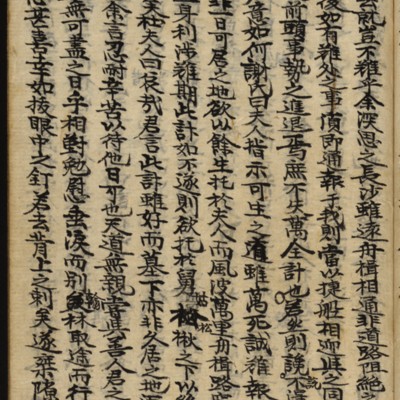 去就豈不難乎余深思之長沙雖遠舟楫相通非道路阻絶之
後如有難处之事須即通報于我則當以捷船相迎與之同
前頭事勢之進退焉庶不失萬全計也君則說不違
意如何謝氏曰夫人指示可生之道雖萬死誠難報
非日可居之地欲以餘生托於夫人而風波萬里舟楫路
身利涉難期此計如不遂則欲托於舅姑松楸之下以終
杜夫人曰哀哉君言此計雖好而墓下亦非久居之地
余言忍耐辛苦以待他日可也天道無親當與善人君之
無可盡之日乎相對勉慰垂淚而別翰林取途而行
喜幸如拔眼中之釘若去背上之刺矣遂乘隙